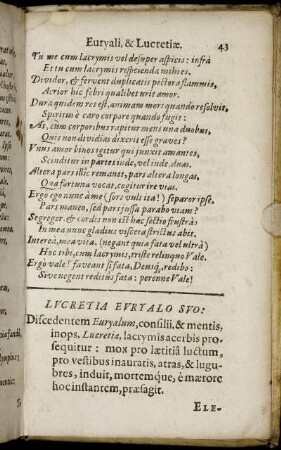 Euryali, & Lucretiæ. 43
Tu me cum lacrymis vel desuper aspicis: infrà
Et tu cum lacrymis respicienda mihi es.
Dividor, & fervent duplicatis pectora flammis,
Acrior hic fibris qualibet urit amor.
Dura quidem res est, animam mors quando resolvit,
Spiritus è caro corpore quando fugit:
As, cum corporibus rapitur mens una duobus,
Quis non dividias dixerit esse graves?
Vnus amor binos tegitur qui junxit amantes,
Scinditur in partes inde, vel inde, duas.
Altera pars illîc remanet, pars altera longas,
Quà fortuna vocat, cogitur ire vias.
Ergo ego nunc à me (fors vult ita!) separor ipse.
Pars maneo, sed pars jussa parabo viam?
Segreger. & cordis non est hæc sectio frustrà:
In mea nunc gladius viscera strictus abit.
Interea, mea vita. (negant quia fata vel ultrà)
Hoc tibi, cum lacrymis, triste relinquo Vale.
Ergo vale! faveant si fata, Deusq́, redibo:
Sive negent reditus fata: perenne Vale!
LVCRETIA EVRYALO SVO:
Discedentem Euryalum, consilii, & mentis,
inops, Lucretia, lacrymis acerbis pro-
sequitur: mox pro lætitiâ luctum,
pro vestibus inauratis, atras, & lugu-
bres, induit, mortemque, è mærore
hoc instantem, præsagit.
ELE-